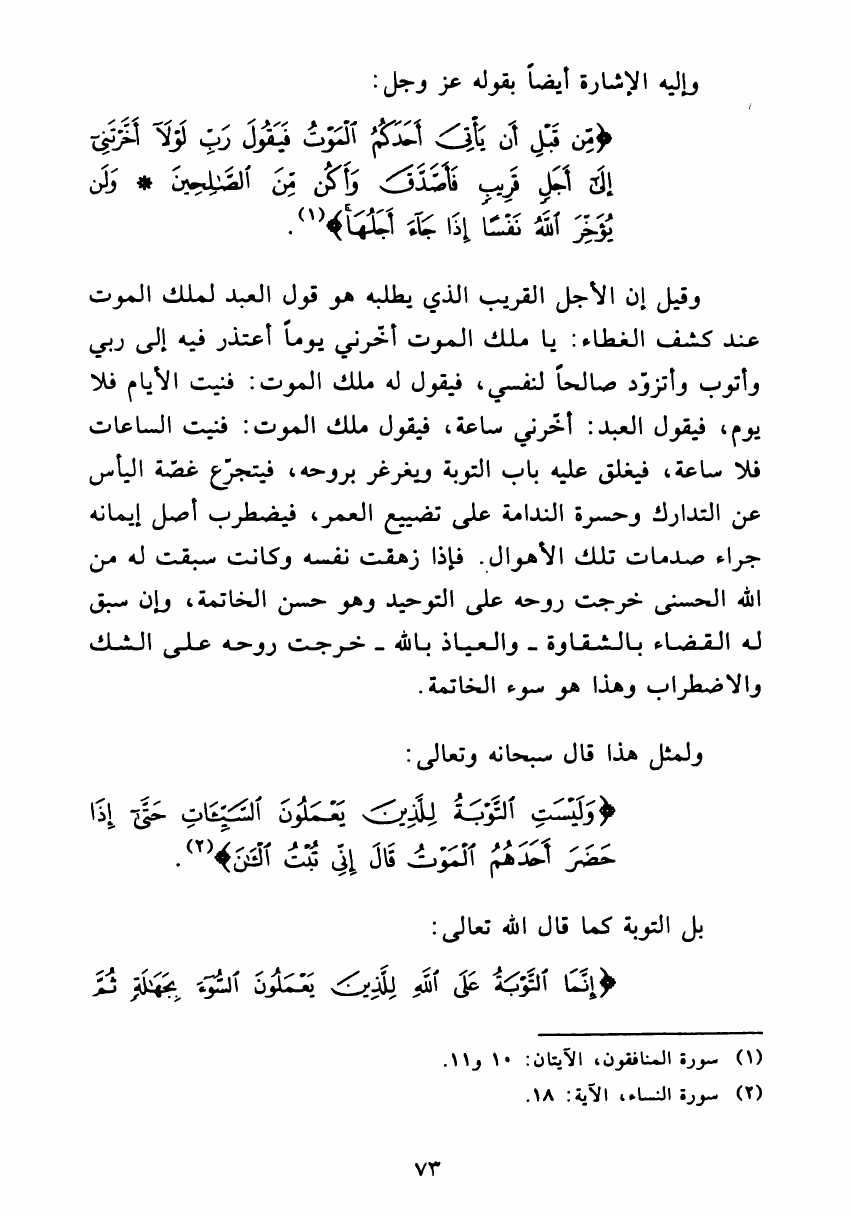 وإليه الإشارة أيضاً بقوله عز وجل:
﴿مِّن قَبْلِ أَن يَأْتِيَ أَحَدَكُمُ ٱلْمَوْتُ فَيَقُولَ رَبِّ لَوْلَآ أَخَّرْتَنِىٓ
إِلَىٰٓ أَجَلٍ قَرِيبٍ فَأَصَّدَّقَ وَأَكُن مِّنَ ٱلصَّٰلِحِينَ * وَلَن
يُؤَخِّرَ ٱللَّهُ نَفْسًا إِذَا جَآءَ أَجَلُهَاۚ﴾(١).
وقيل إن الأجل القريب الذي يطلبه هو قول العبد لملك الموت
عند كشف الغطاء: يا ملك الموت أخّرني يوماً أعتذر فيه إلى ربي
وأتوب وأتزوّد صالحاً لنفسي، فيقول له ملك الموت: فنيت الأيام فلا
يوم، فيقول العبد: أخّرني ساعة، فيقول ملك الموت: فنيت الساعات
فلا ساعة، فيغلق عليه باب التوبة ويغرغر بروحه، فيتجرّع غصّة اليأس
عن التدارك وحسرة الندامة على تضييع العمر، فيضطرب أصل إيمانه
جراء صدمات تلك الأهوال. فإذا زهقت نفسه وكانت سبقت له من
الله الحسنى خرجت روحه على التوحيد وهو حسن الخاتمة، وإن سبق
له القضاء بالشقاوة ـ والعياذ بالله ـ خرجت روحه على الشك
والاضطراب وهذا هو سوء الخاتمة.
ولمثل هذا قال سبحانه وتعالى:
﴿وَلَيْسَتِ ٱلتَّوْبَةُ لِلَّذِينَ يَعْمَلُونَ ٱلسَّيِّـَٔاتِ حَتَّىٰٓ إِذَا
حَضَرَ أَحَدَهُمُ ٱلْمَوْتُ قَالَ إِنِّى تُبْتُ ٱلْـَٰٔنَ﴾(٢).
بل التوبة كما قال الله تعالى:
﴿إِنَّمَا ٱلتَّوْبَةُ عَلَى ٱللَّهِ لِلَّذِينَ يَعْمَلُونَ ٱلسُّوٓءَ بِجَهَٰلَةٍ ثُمَّ
(١) سورة المنافقون، الآيتان: ١٠ و١١.
(٢) سورة النساء، الآية: ١٨.
٧٣